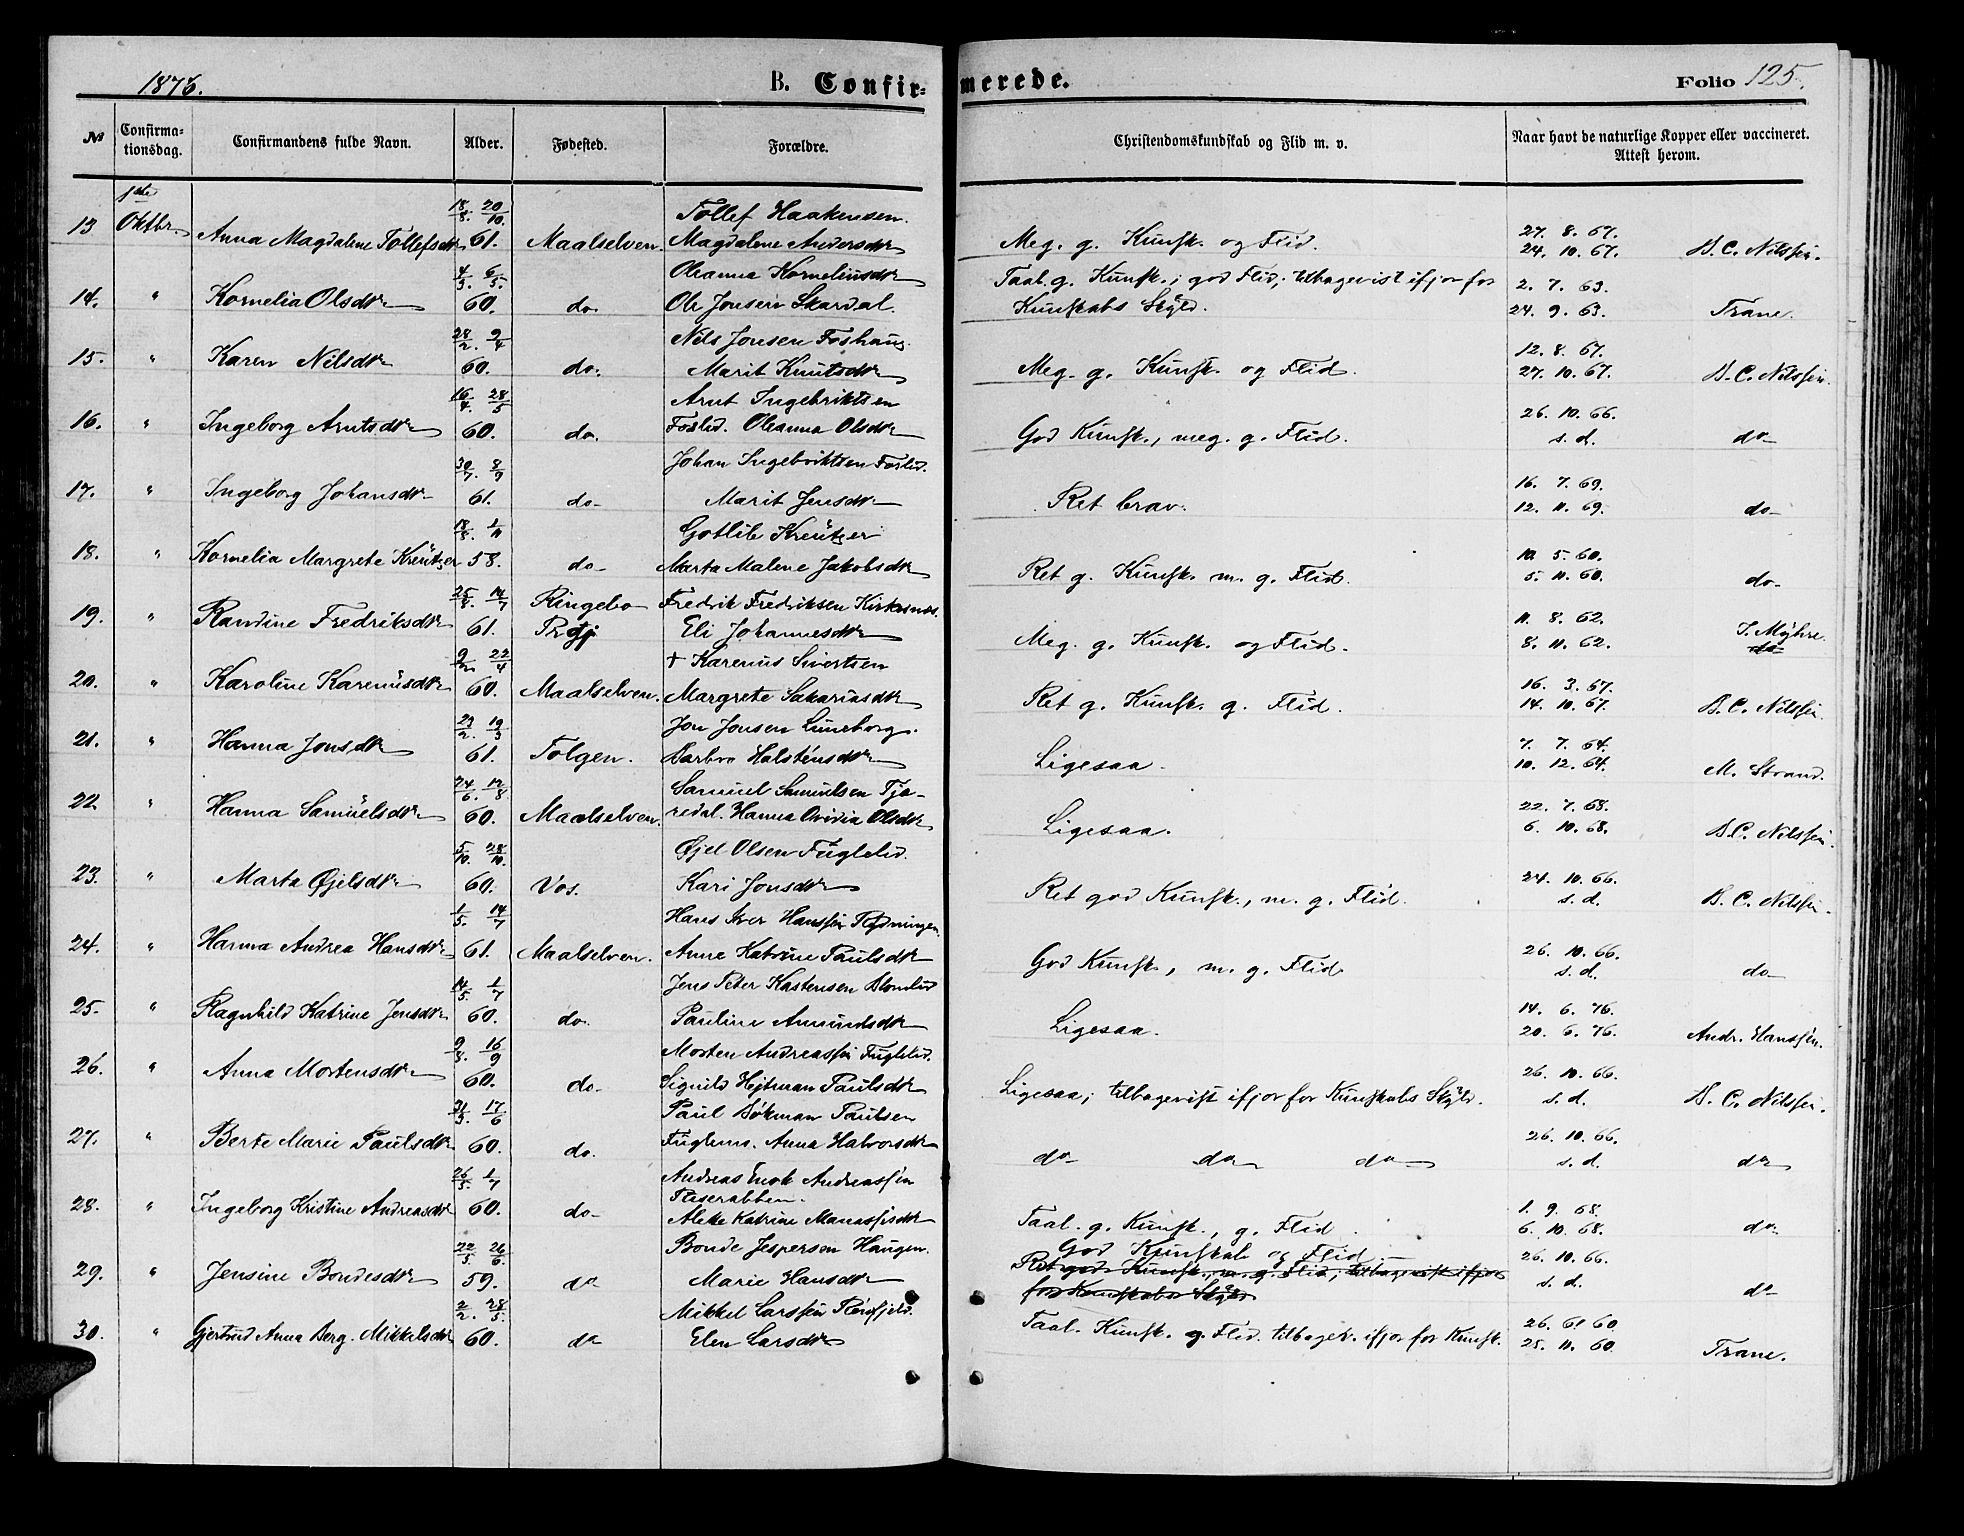 1876.
B. Confirmerede.
Folio 125.
№ Confirmationsdag. Confirmandens fulde Navn. Alder. Fødested. Forældre. Christendomskundskab og Flid m. v. Naar havt de naturlige Kopper eller vaccineret. Attest herom.
1ste
13 Oktbr. Anna Magdalene Tollefsdtr 18/8. 20/10. 61. Maalselven. Tollef Haakensen. Magdalene Andersdtr Meg. g. Kunsk. og Flid. 27. 8. 67. 24. 10. 67. B. C. Nilssen.
14. " Kornelia Olsdtr 4/3. 6/5. 60. do. Oleanna Korneliusdtr Ole Jonsen Skardal. Taal. g. Kunsk.; god Flid; tilbagevist ifjor for Kunskabs Skyld. 2. 7. 63. 24. 9. 63. Trane.
15. " Karen Nilsdtr 28/2. 9/4 60. do. Nils Jonsen Foshaug. Marit Knutsdtr Meg. g. Kunsk. og Flid. 12. 8. 67. 27. 10. 67. B. C. Nilssen.
16. " Ingeborg Arntsdtr 16/4. 28/5 60. do. Arnt Ingebriktsen Foslid. Oleanna Olsdtr God Kunsk., meg. g. Flid. 26. 10. 66. s. d. do
17. " Ingeborg Johansdtr 30/7. 8/9 61. do Johan Ingebriktsen Foslid. Marit Jensdtr Ret brav. 16. 7. 69. 12. 11. 69. do
18. " Kornelia Margrete Kreutzer 18/8. 1/11 58. do Gotlib Kreutzer Marta Malene Jakobsdtr Ret g. Kunsk. m. g. Flid. 10. 5. 60. 5. 11. 60. do
19. " Randine Fredriksdtr 14/7 61. Ringebo Prgj Fredrik Fredriksen Kirkesnes. Eli Johannesdtr Meg. g. Kunsk. og Flid. 11. 8. 62. 8. 11. 62. J. Myhre. do
20. " Karoline Kareniusdtr 22/4 60. Maalselven. † Karenius Sivertsen Margrete Sakariasdtr Ret g. Kunsk. g. Flid. 16. 3. 67. 14. 10. 67. B. C. Nilssen.
21. " Hanna Jonsdtr 19/3 61. Tolgen. Jon Jonsen Luneborg. Barbro Halstensdtr Ligesaa. 7. 7. 64. 10. 12. 64. M. Strand.
22 " Hanna Samuelsdtr 24/6. 12/8 60. Maalselven. Samuel Samuelsen Tjaredal. Hanna Ovidia Olsdtr Ligesaa. 22. 7. 68. 6. 10. 68. B. C. Nilssen.
23. " Marta Øjelsdtr 5/10. 28/10. 60. Vos. Øjel Olsen Fuglelid. Kari Jonsdtr Ret god Kunsk., m. g. Flid. 24. 10. 66. s. d. B. C. Nilssen.
24. " Hanna Andrea Hansdtr 1/5. 14/7 61. Maalselven. Hans Iver Hanssen Fredningen. Anne Katrine Paulsdtr God Kunsk., m. g. Flid 26. 10. 66. s. d. do
25. " Ragnhild Katrine Jensdtr 14/5. 1/7 60. do. Jens Peter Kastensen Blomlid Pauline Amundsdtr Ligesaa. 14. 6. 76. 20. 6. 76. Andr. Hanssen.
26. " Anna Mortensdtr 9/8. 16/9 60. do. Morten Andreassen Fuglelid. Signild Hejtman Paulsdtr Ligesaa; tilbagevist ifjor for Kunskabs Skyld. 26. 10. 66. s. d. B. C. Nilssen.
27. " Berte Marie Paulsdtr 17/6 60. do. Paul Bökman Paulsen Fuglemo. Anna Halvorsdtr do do do 26. 10. 66. s. d. do
28. " Ingeborg Kristine Andreasdtr 26/5. 1/7 60. do Andreas Enok Andreassen Fliserabben. Aleke Katrine Manassesdtr Taal. g. Kunsk., g. Flid. 1. 9. 68. 6. 10. 68. do
29. " Jensine Bondesdtr 22/5. 26/6. 59. do Bonde Jespersen Haugen. Marie Hansdtr God Kunskab og Flid. Ret god Kunsk., m. g. Flid; tilbagevist ifjor for Kunskabs Skyld 26. 10. 66. s. d. do
30. " Gjertrud Anna Berg. Mikkelsdtr 2/2. 28/5. 60. do Mikkel Larssen Rossfjeld. Elen Larsdtr Taal. Kunsk. g. Flid. tilbagev. ifjor for Kunsk. 26. 61 60. 25. 11. 60. Trane.